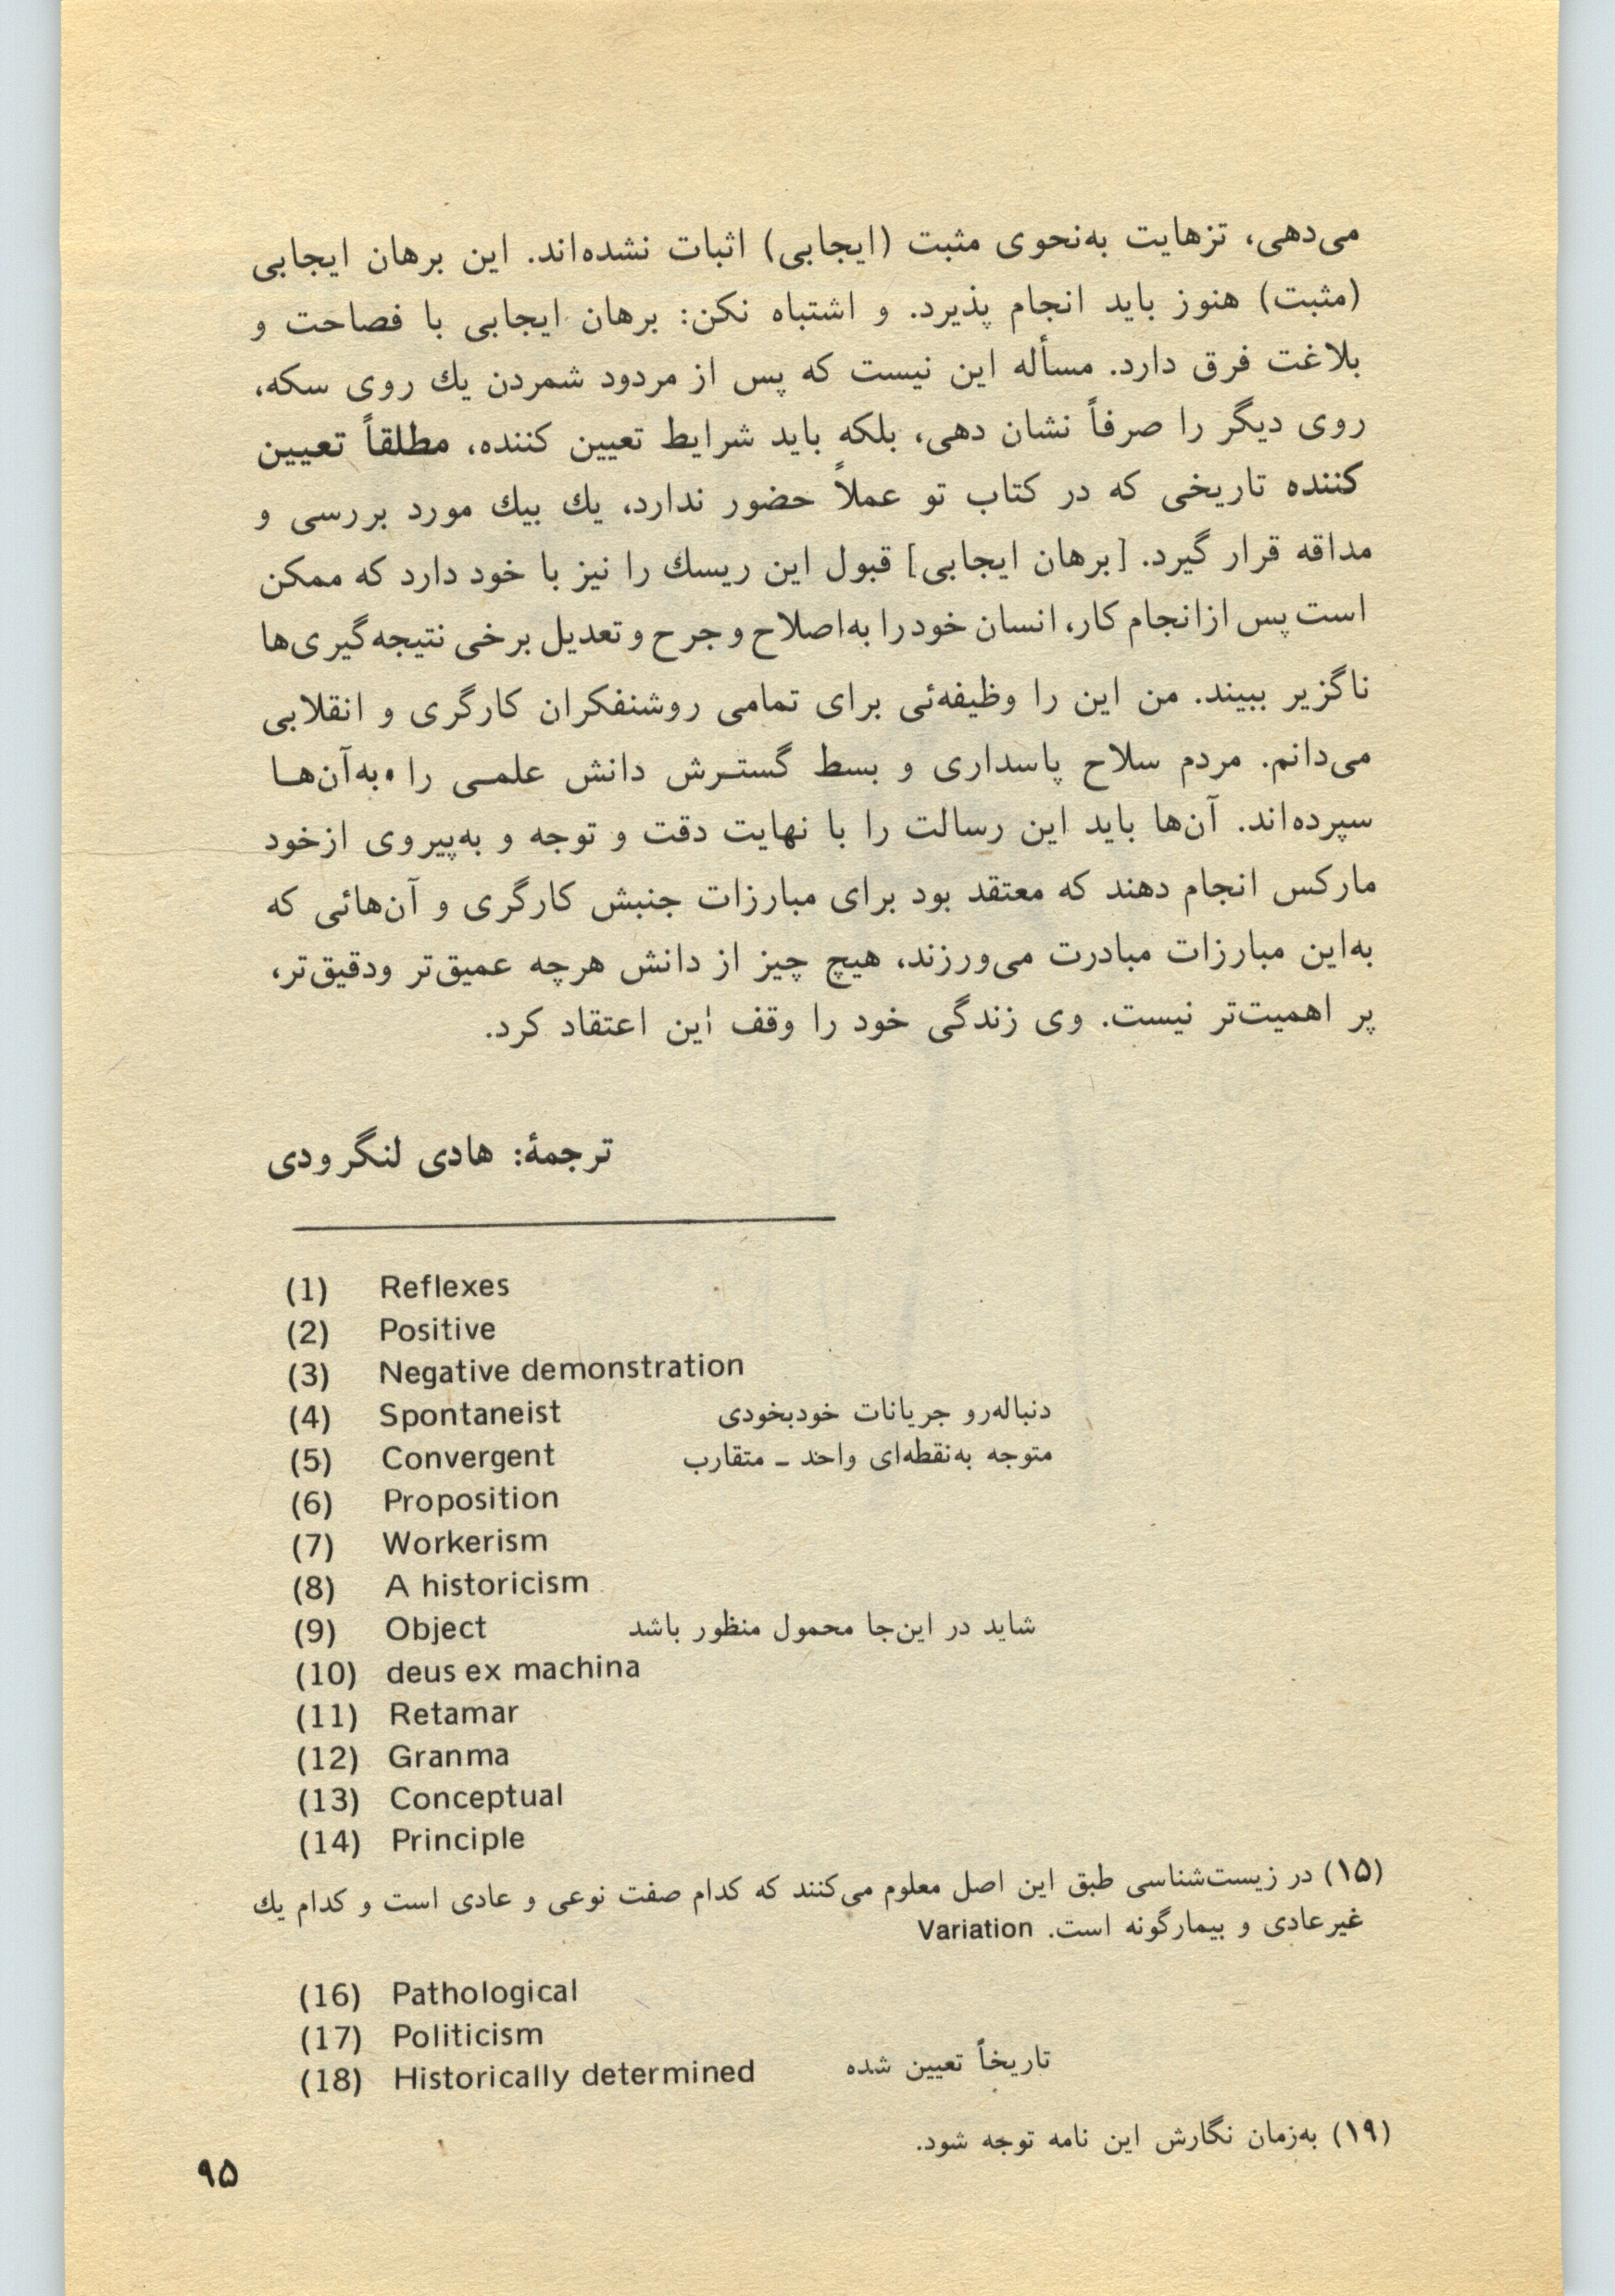 می‌دهی، تزهایت به‌نحوی مثبت (ایجابی) اثبات نشده‌اند. این برهان ایجابی
(مثبت) هنوز باید انجام پذیرد. و اشتباه نکن: برهان ایجابی با فصاحت و
بلاغت فرق دارد. مسأله این نیست که پس از مردود شمردن یك روی سکه،
روی دیگر را صرفاً نشان دهی، بلکه باید شرایط تعیین کننده، مطلقاً تعیین
کننده تاریخی که در کتاب تو عملاً حضور ندارد، یك بیك مورد بررسی و
مداقه قرار گیرد. [برهان ایجابی] قبول این ریسك را نیز با خود دارد که ممکن
است پس از انجام کار، انسان خود را به‌اصلاح و جرح و تعدیل برخی نتیجه‌گیری‌ها
ناگزیر ببیند. من این را وظیفه‌ئی برای تمامی روشنفکران کارگری و انقلابی
می‌دانم. مردم سلاح پاسداری و بسط گستـرش دانش علمـی را به‌آن‌هـا
سپرده‌اند. آن‌ها باید این رسالت را با نهایت دقت و توجه و به‌پیروی از خود
مارکس انجام دهند که معتقد بود برای مبارزات جنبش کارگری و آن‌هائی که
به‌این مبارزات مبادرت می‌ورزند، هیچ چیز از دانش هرچه عمیق‌تر ودقیق‌تر،
پر اهمیت‌تر نیست. وی زندگی خود را وقف این اعتقاد کرد.
ترجمهٔ: هادی لنگرودی
(1) Reflexes
(2) Positive
(3) Negative demonstration
(4) Spontaneist دنباله‌رو جریانات خودبخودی
(5) Convergent متوجه به‌نقطه‌ای واحد ـ متقارب
(6) Proposition
(7) Workerism
(8) A historicism
(9) Object شاید در این‌جا محمول منظور باشد
(10) deus ex machina
(11) Retamar
(12) Granma
(13) Conceptual
(14) Principle
(۱۵) در زیست‌شناسی طبق این اصل معلوم می‌کنند که کدام صفت نوعی و عادی است و کدام یك
غیرعادی و بیمارگونه است. Variation
(16) Pathological
(17) Politicism
(18) Historically determined تاریخاً تعیین شده
(۱۹) به‌زمان نگارش این نامه توجه شود.
۹۵